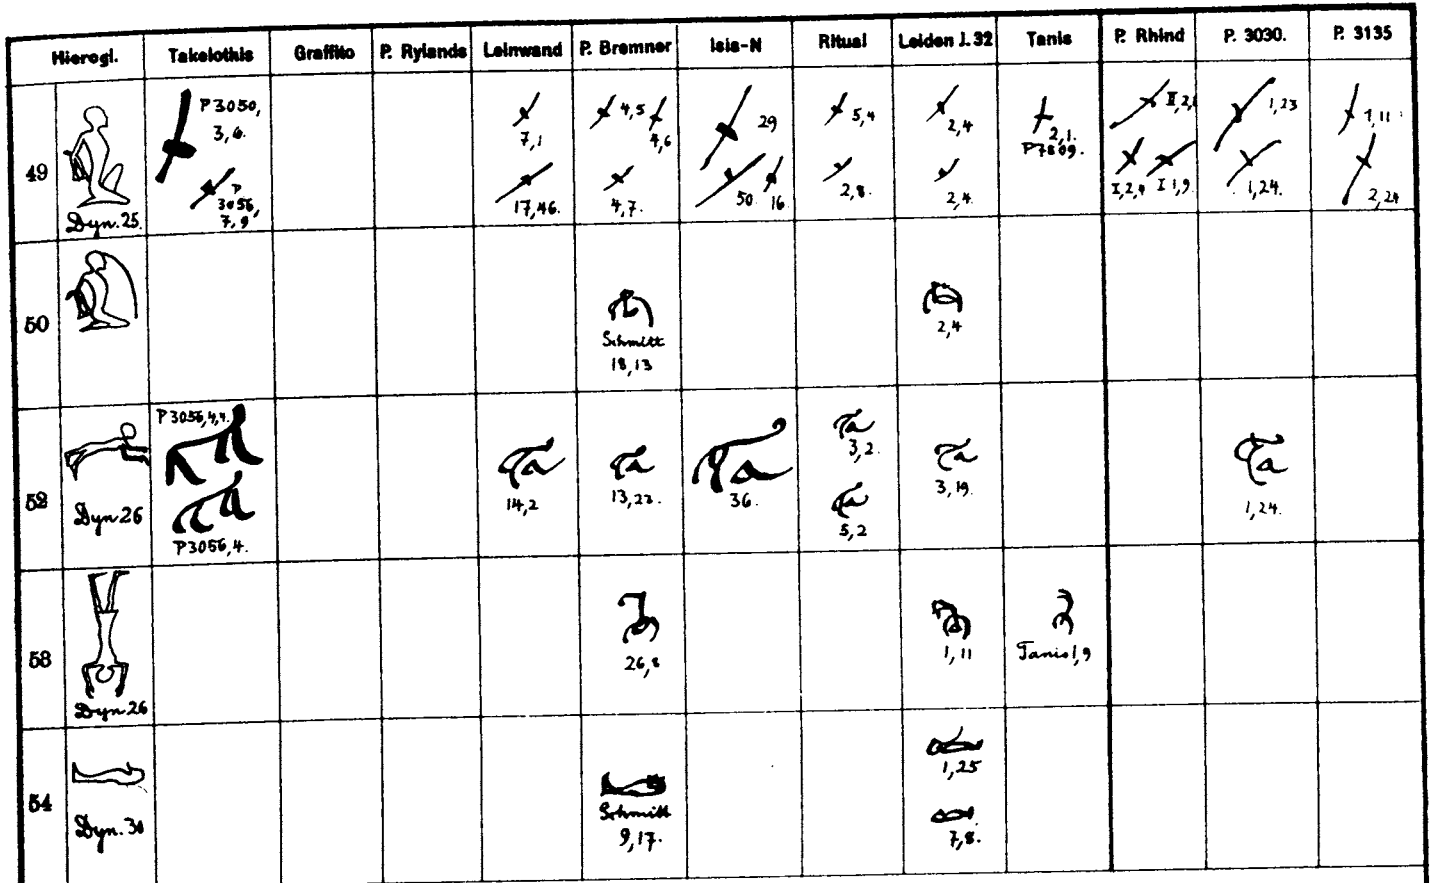 Hierogl. Takelothis Graffito P. Rylands Leinwand P. Bremner Isis-N Ritual Leiden J. 32 Tanis P. Rhind P. 3030. P. 3135
49
Dyn. 25.
P 3050,
3,6.
P
3056,
7,9
7,1
17,46.
4,5
4,6
4,7.
29
50. 16
5,4
2,8.
2,4
2,4.
2,1.
P7809.
II,2,1
I,2,9 I 1,9.
1,23
1,24.
1,11
2,24
50
Schmitt
18,13
2,4
52
Dyn 26
P 3056,4,4.
P3056,4.
14,2
13,22.
36.
3,2.
5,2
3,19.
1,24.
53
Dyn 26
26,8
1,11
Tanis 1,9
54
Dyn. 30
Schmitt
9,17.
1,25
7,8.